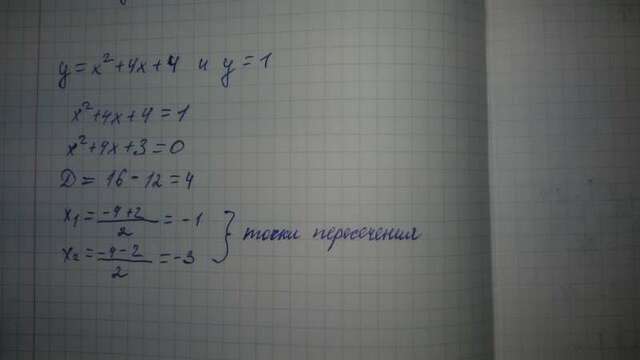 y = x² + 4x + 4 и y = 1
x² + 4x + 4 = 1
x² + 4x + 3 = 0
D = 16 - 12 = 4
x₁ = (-4+2)/2 = -1
x₂ = (-4-2)/2 = -3
точки пересечения